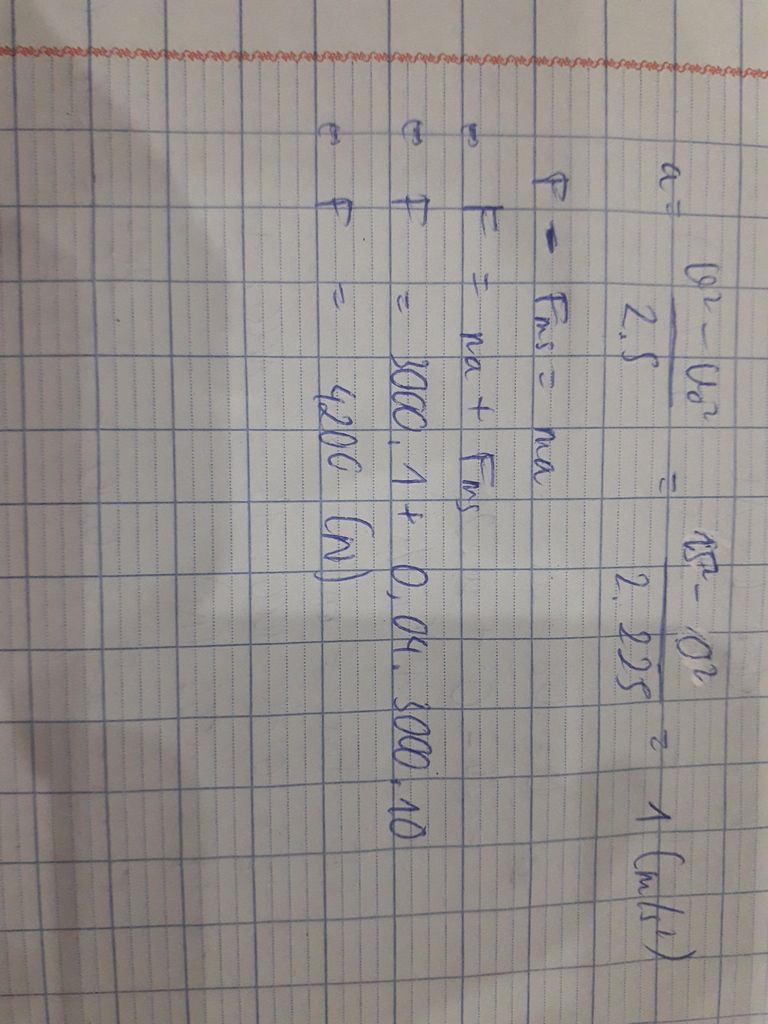 a = v² - v₀² / 2.S = 15² - 10² / 2. 225 = 1 (m/s²)
F - Fms = ma
F = ma + Fms
F = 3000.1 + 0,04.3000.10
F = 4200 (N)